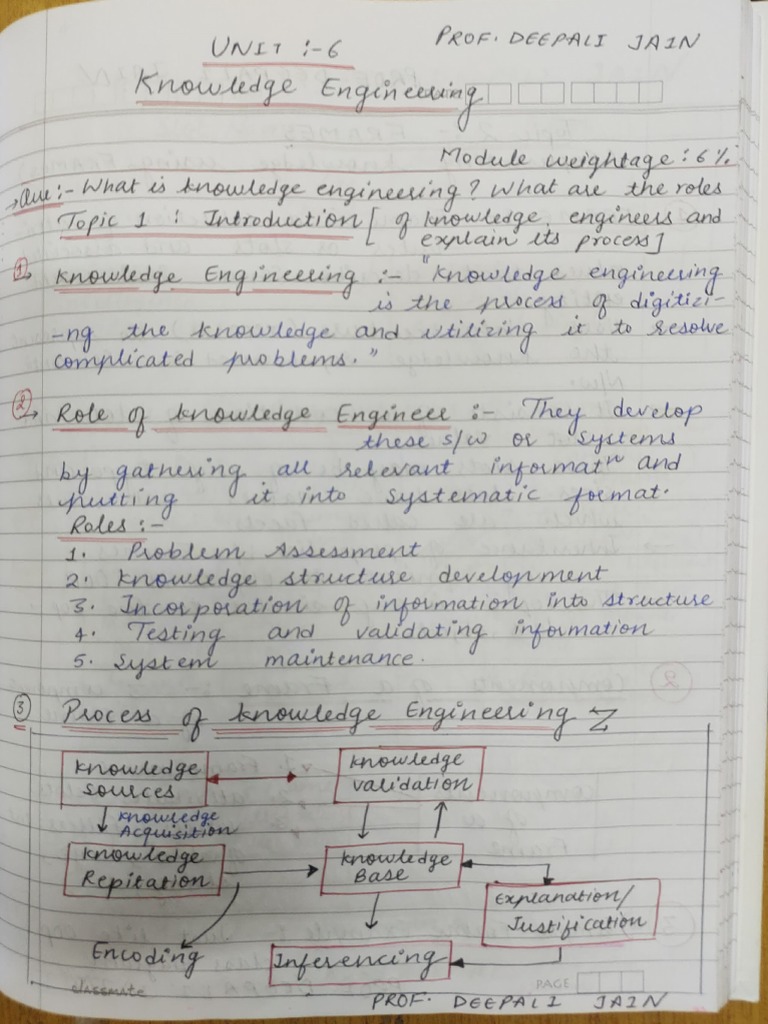 UNIT :- 6
PROF. DEEPALI JAIN
Knowledge Engineering
Module weightage : 6%
Que :- What is knowledge engineering? What are the roles
Topic 1 : Introduction [ of knowledge engineers and
explain its process]
1. Knowledge Engineering :- "Knowledge engineering
is the process of digitizi-
-ng the knowledge and utilizing it to resolve
complicated problems."
2 Role of knowledge Engineer :- They develop
these s/w or systems
by gathering all relevant informatn and
putting it into systematic format.
Roles :-
1. Problem Assessment
2. Knowledge structure development
3. Incorporation of information into structure
4. Testing and validating information
5. System maintenance.
3 Process of knowledge Engineering
Knowledge
Sources
Knowledge
Validation
Knowledge
Acquisition
Knowledge
Repitation
Knowledge
Base
Explanation/
Justification
Encoding
Inferencing
classmate
PAGE
PROF. DEEPALI JAIN